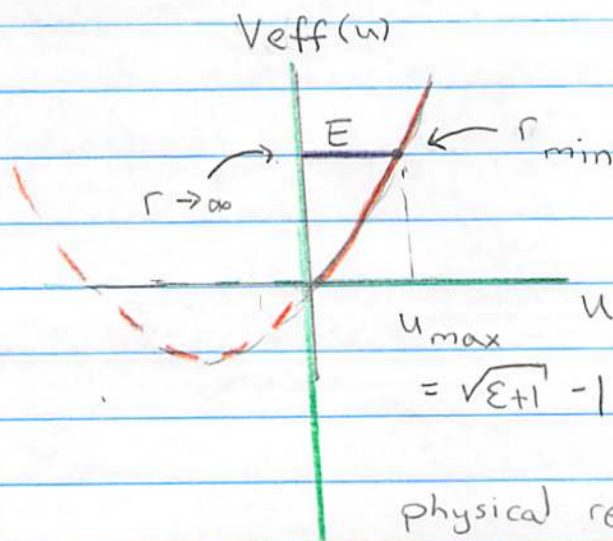 Veff(u)
E
r min
r → ∞
u max
u
= √ε+1 - 1
physical re